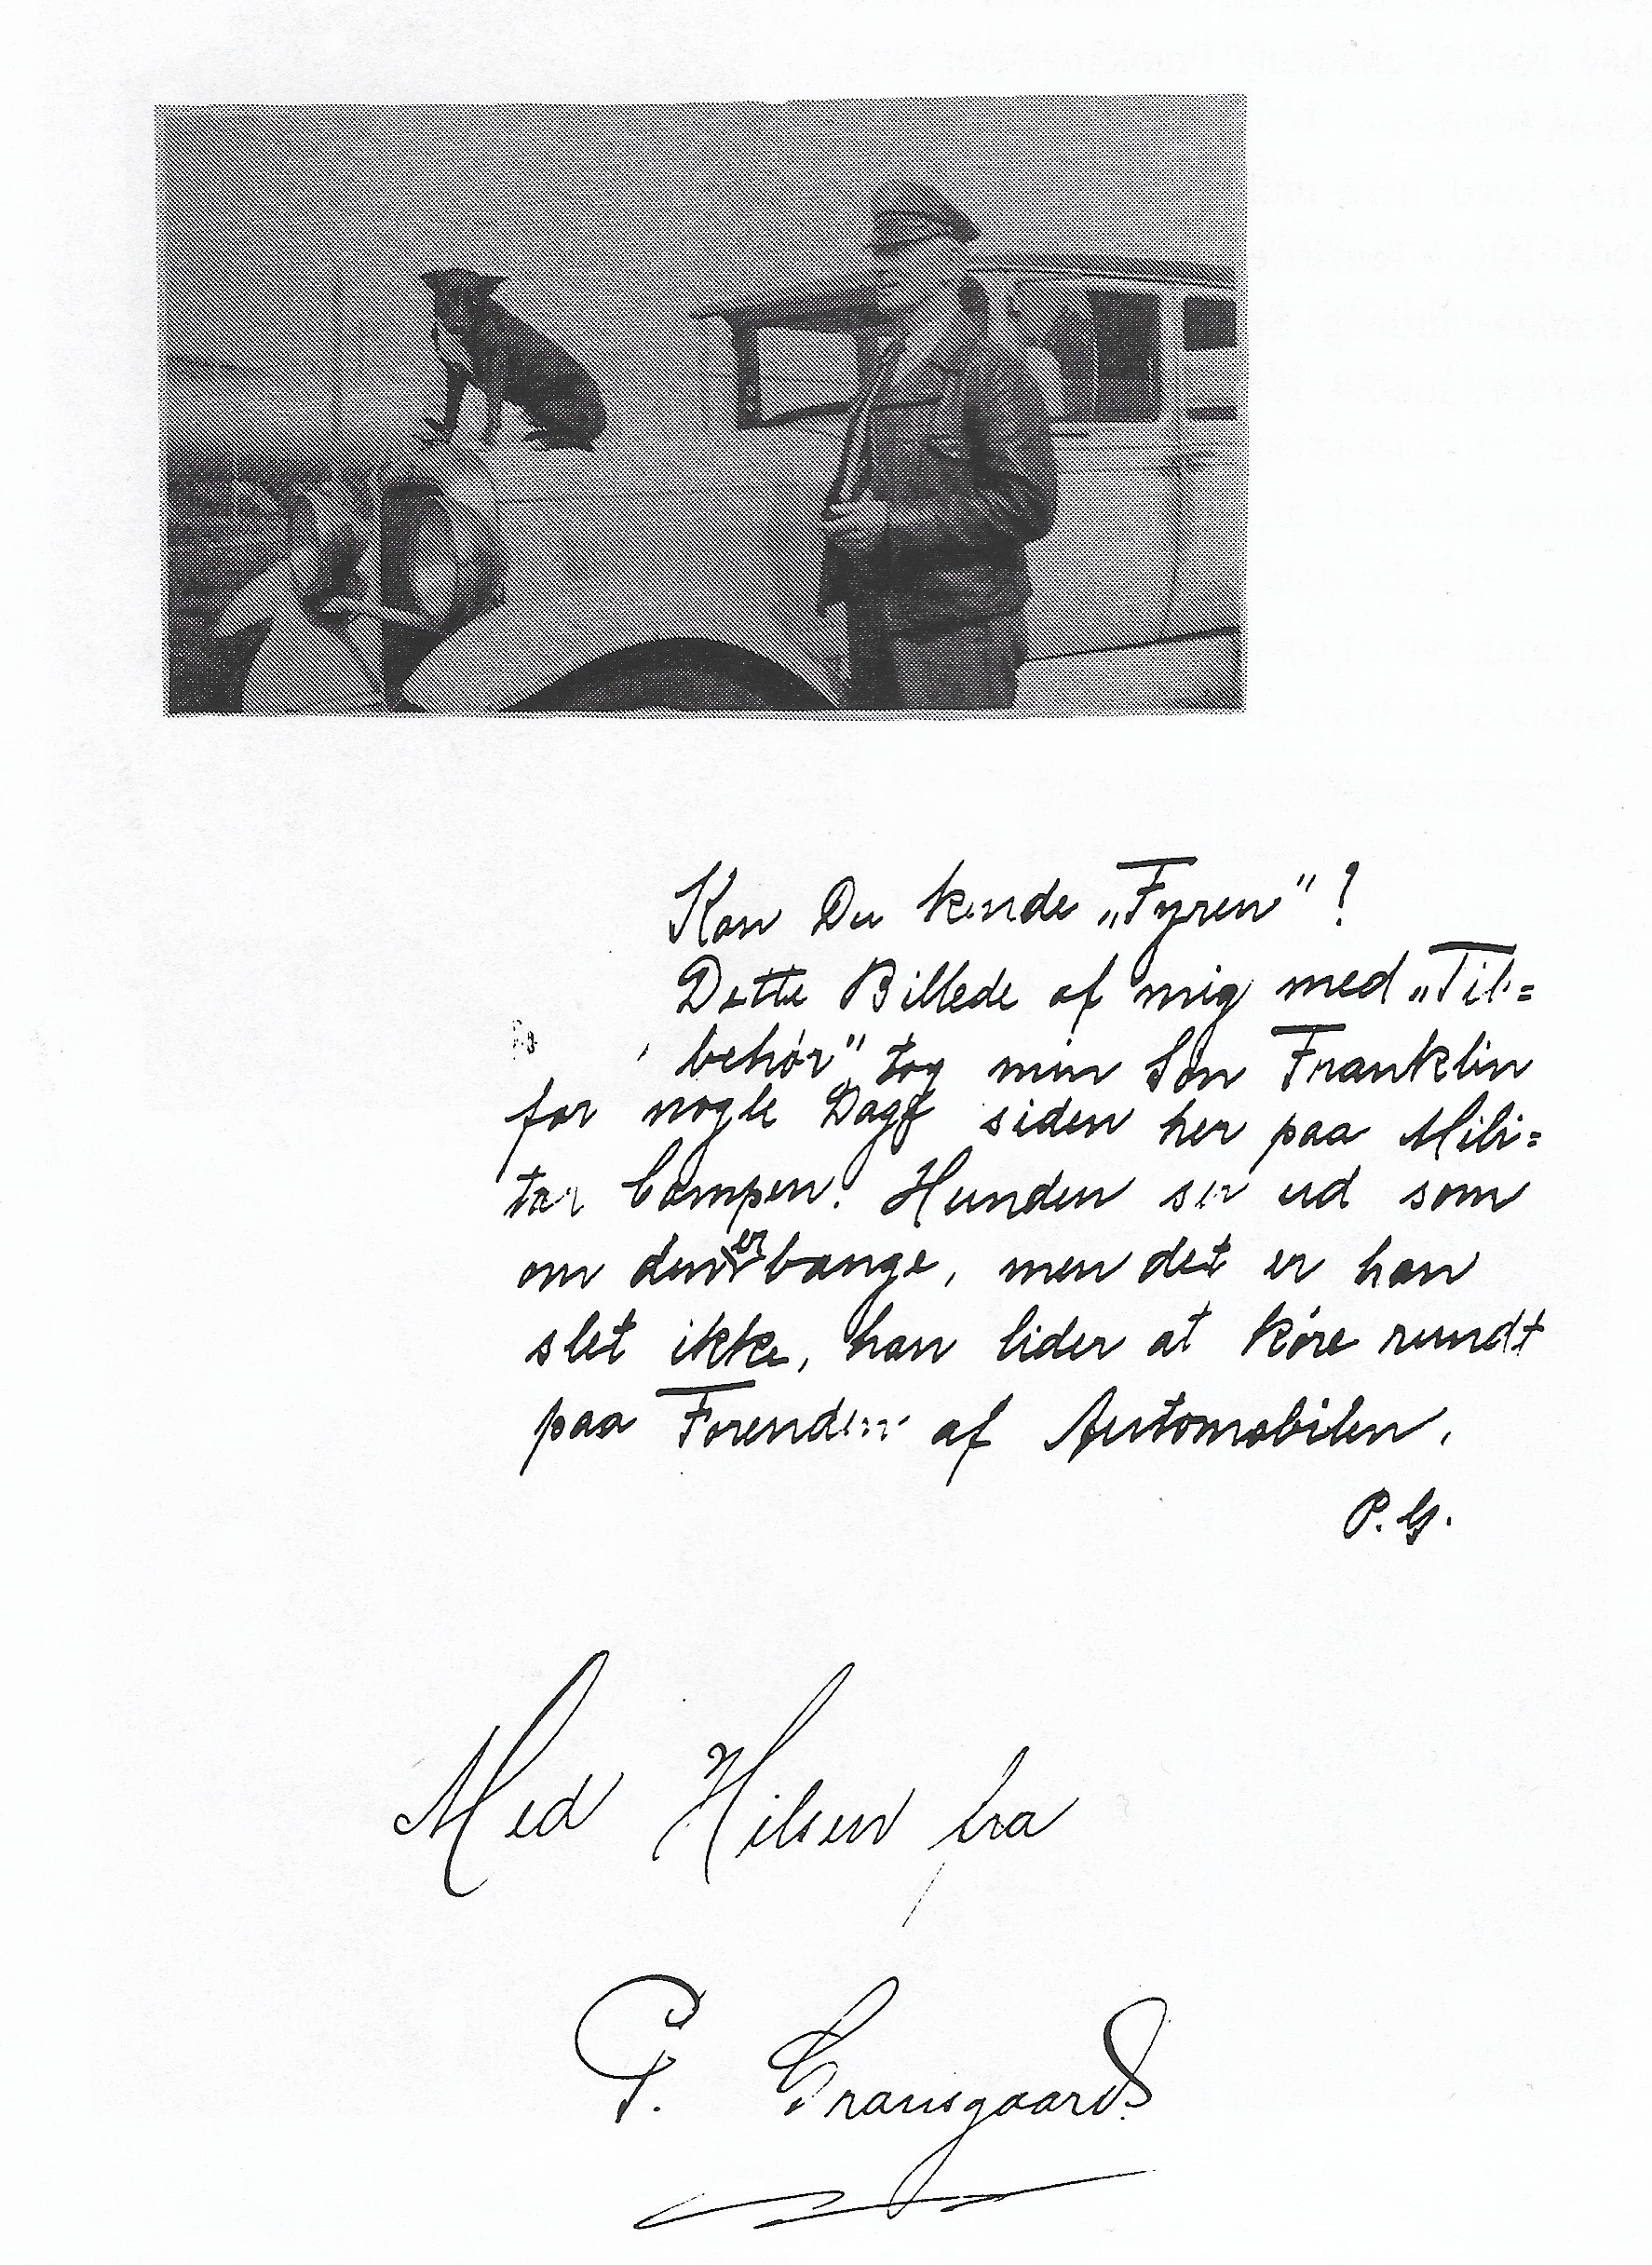 Kan Du kende „Fyren"?
Dette Billede af mig med „Til=
behór" tog min Søn Franklin
for nogle Dage siden her paa Mili=
tær Campen. Hunden ser ud som
om den er bange, men det er han
slet ikke, han lider at kóre rundt
paa Forenden af Automobilen.
P. G.
Med Hilsen fra
P. Gransgaard